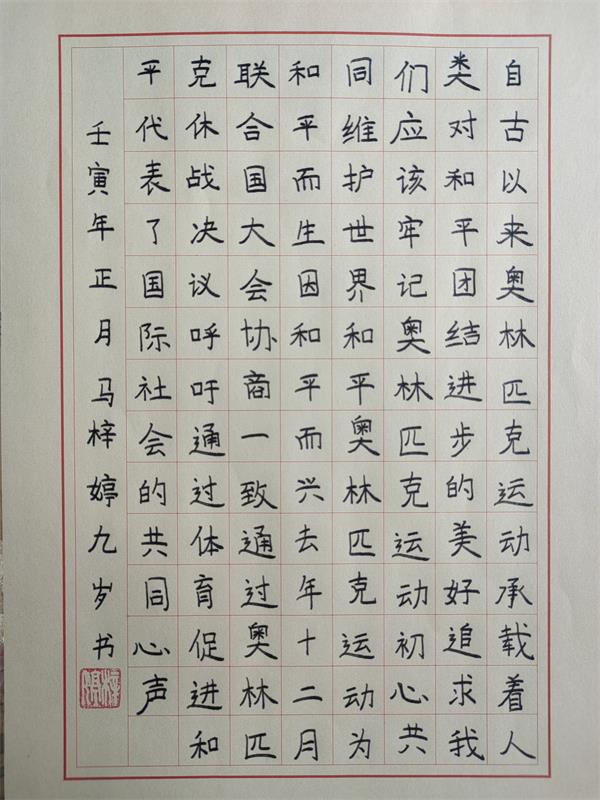 自古以来奥林匹克运动承载着人
类对和平团结进步的美好追求我
们应该牢记奥林匹克运动初心共
同维护世界和平奥林匹克运动为
和平而生因和平而兴去年十二月
联合国大会协商一致通过奥林匹
克休战决议呼吁通过体育促进和
平代表了国际社会的共同心声
壬寅年正月马梓婷九岁书